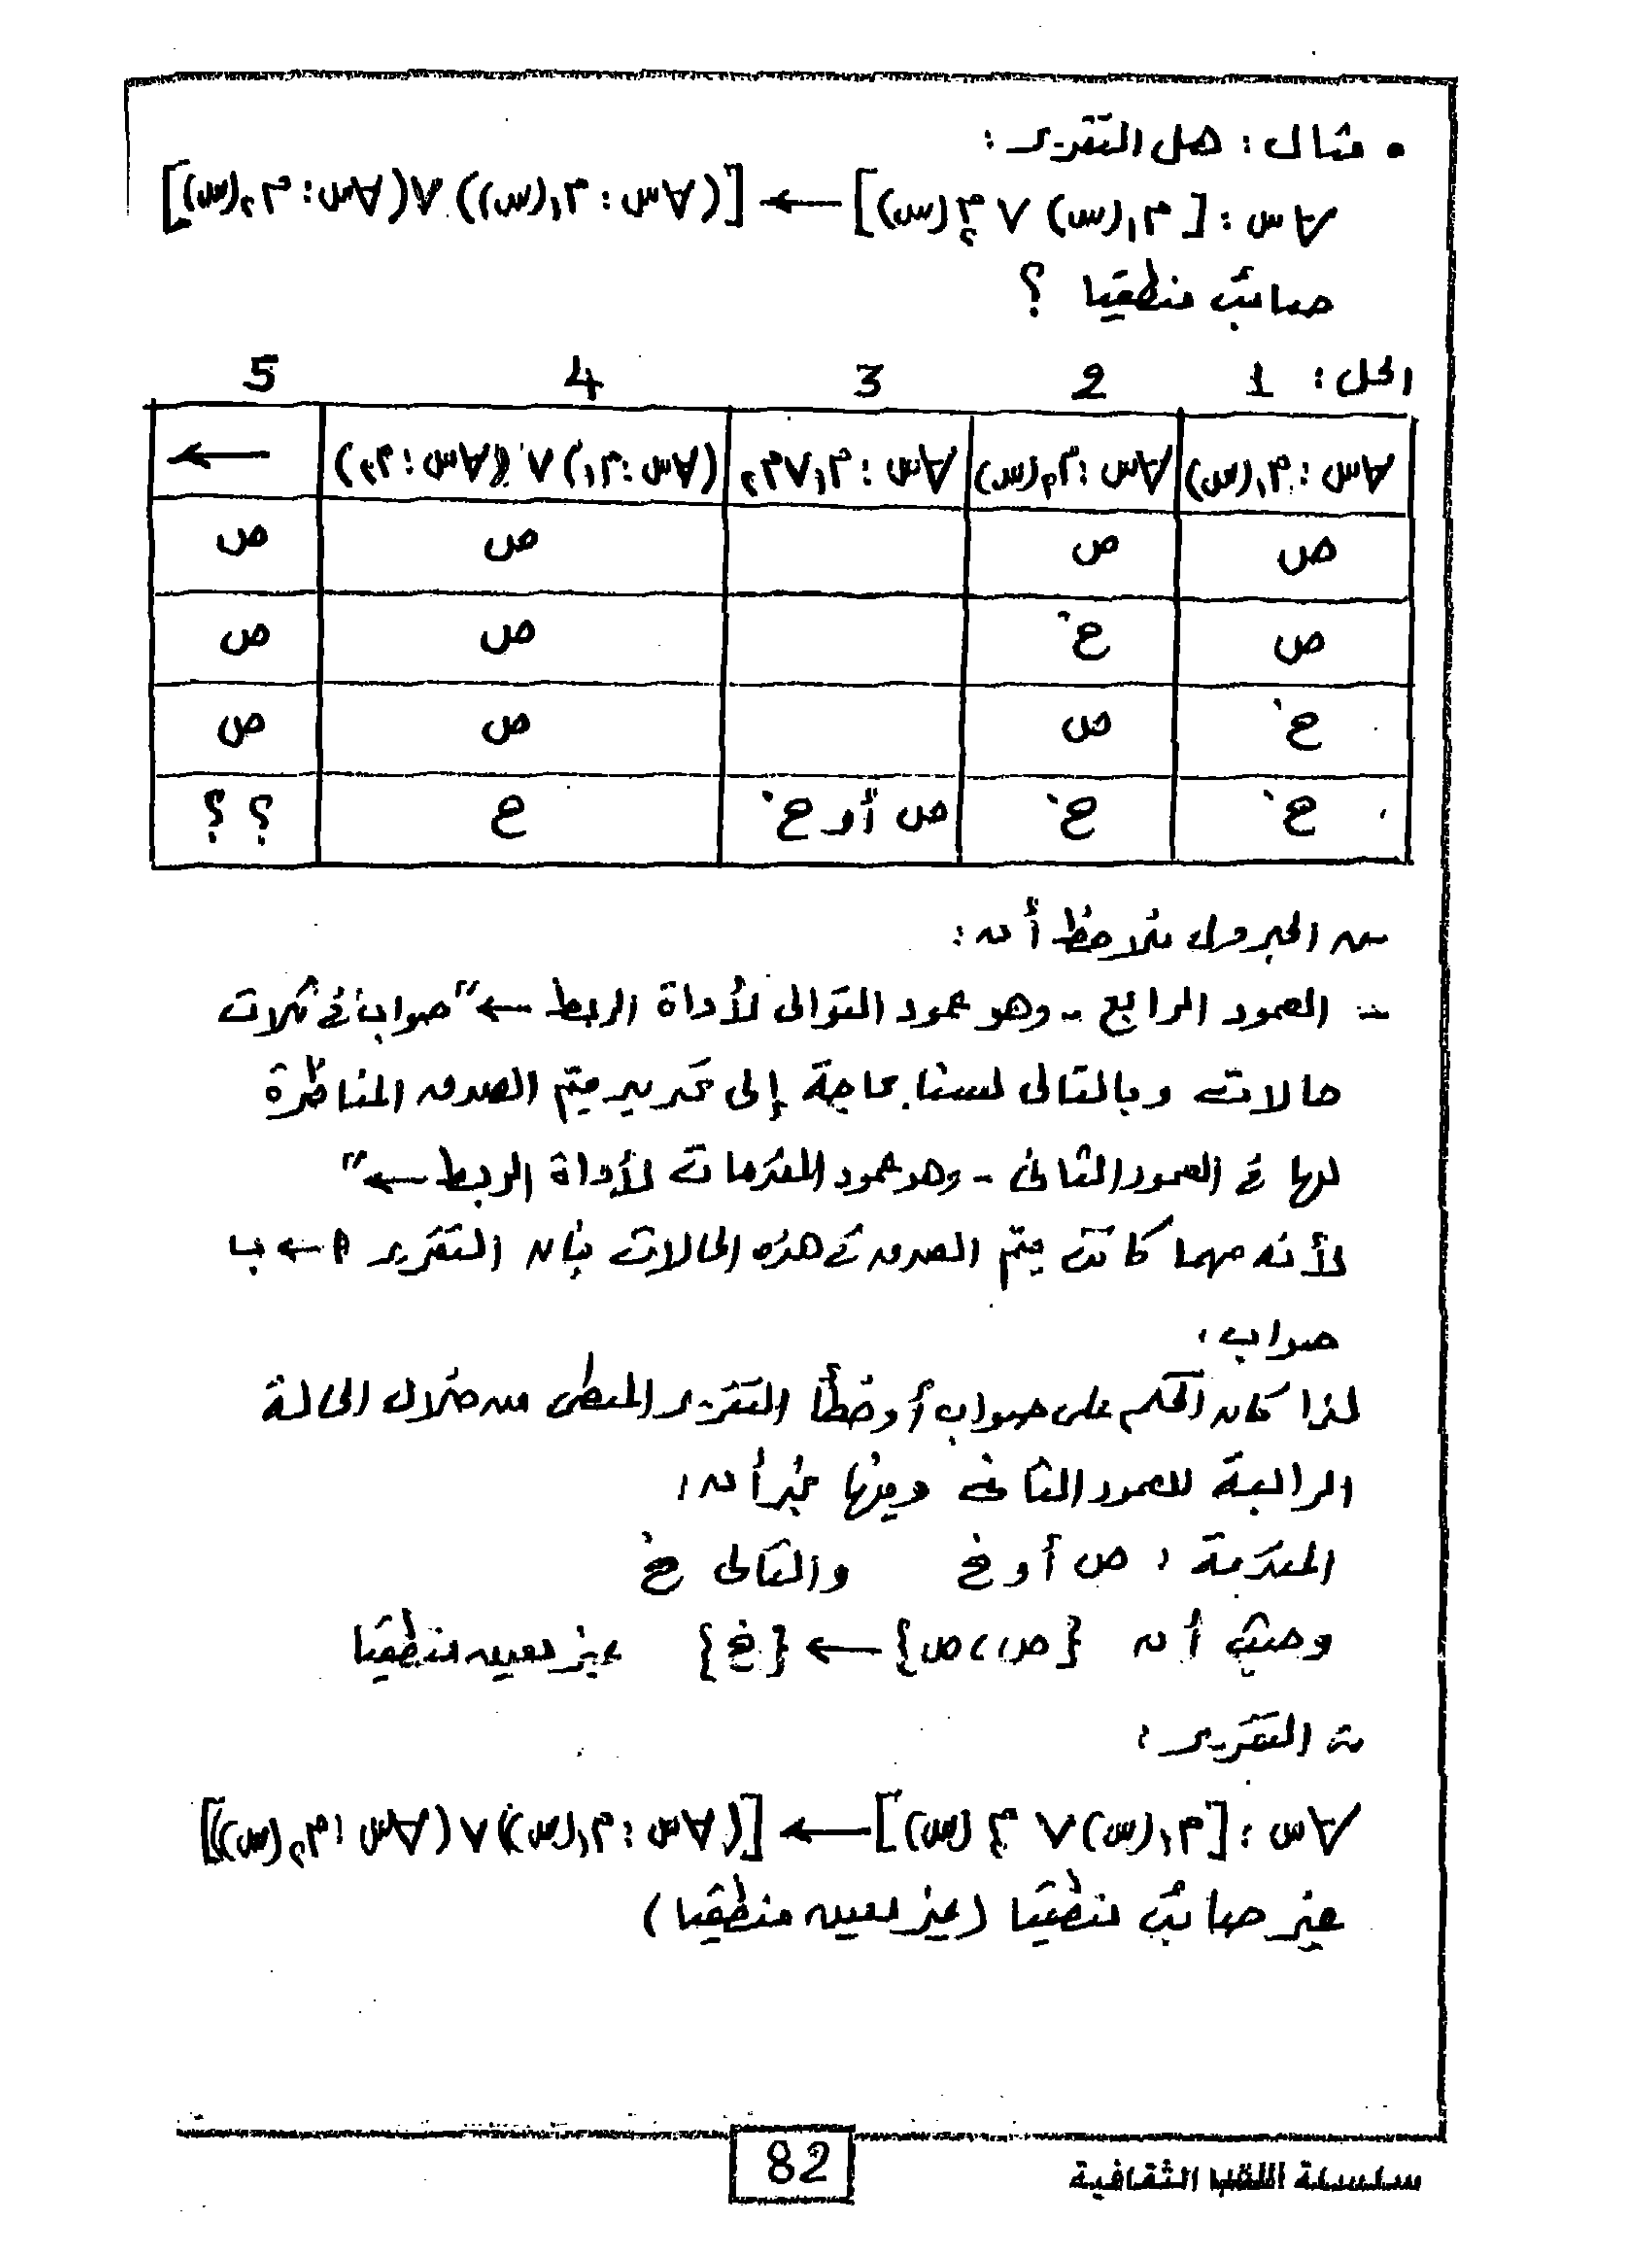 • مثال : هل التقرير :
∀س : [م١(س) ∨ م٢(س)] ← [(∀س : م١(س)) ∨ (∀س : م٢(س)]
صائب منطقيا ؟
الحل : 1 2 3 4 5
∀س : م١(س) ∀س : م٢(س) ∀س : م١∨م٢ (∀س : م١) ∨ (∀س : م٢) ←
ص ص ص ص
ص خ ص ص
خ ص ص ص
خ خ ص أو خ ح ؟ ؟
من الجدول نلاحظ أن :
- العمود الرابع - وهو عمود التوالى لأداة الربط ←" صواب في ثلاث
حالات وبالتالى لسنا بحاجة إلى تحديد قيم الصدق المناظرة
لها في العمود الثانى - وهو عمود المقدمات لأداة الربط ←"
لأنه مهما كانت قيم الصدق في هذه الحالات فإن التقرير ١ ← ب
صواب ،
لذا كان الحكم على صواب أو خطأ التقرير المعطى من خلال الحالة
الرابعة للعمود الثانى وفيها نجد أن :
المقدمة : ص أو خ والتالى خ
وحيث أن {ص،ص} ← {خ} غير معين منطقيا
∴ التقرير :
∀س : [م١(س) ∨ م٢(س)] ← [(∀س : م١(س)) ∨ (∀س : م٢(س))]
غير صائب منطقيا (غير معين منطقيا)
82
سلسلة اللقب الثقافية